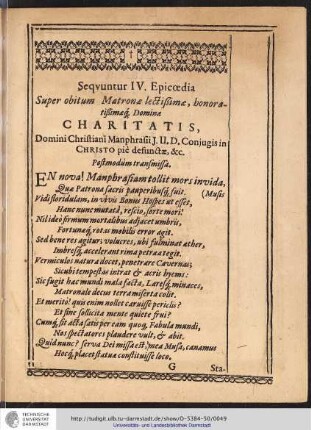 Seqvuntur IV. Epicœdia
Super obitum Matronæ lectißimæ, honora-
tißimæq́, Dominæ
CHARITATIS,
Domini Christiani Manphrasii J. U. D. Conjugis in
CHRISTO piè defunctæ, &c.
Postmodùm transmissa.
EN nova! Manphrasiam tollit mors invida,
Quæ Patrona sacris pauperibusq́, fuit. (Musis
Vidi floridulam, in vivis Bonus Hospes ut esset,
Hanc nunc mutatâ, rescio, sorte mori.
Nil ideò firmum mortalibus adjacet umbris,
Fortunæq́, rotas mobilis error agit.
Sed bene res agitur; volucres, ubi fulminat æther,
Imbresq́, accelerant rima petræa tegit.
Vermiculos natura docet, penetrare Cavernas;
Sicubi tempestas intrat & acris hyems:
Sic fugit hæc mundi mala facta, Laresq́, minaces,
Matronale decus terra miserta colit.
Et meritò! quis enim nollet caruisse periclis?
Et sine sollicitâ mente quiete frui?
Cumq́, sit acta satis per eam quoq́, Fabula mundi,
Nos spectatores plaudere vult, & abit.
Quid nunc? serva Dei missa est: mea Musa, canamus
Hocq́, placet statua constituisse loco.
G Sta-
TECHNISCHE
UNIVERSITÄT
DARMSTADT
http://tudigit.ulb.tu-darmstadt.de/show/O-5384-50/0049
Universitäts- und Landesbibliothek Darmstadt